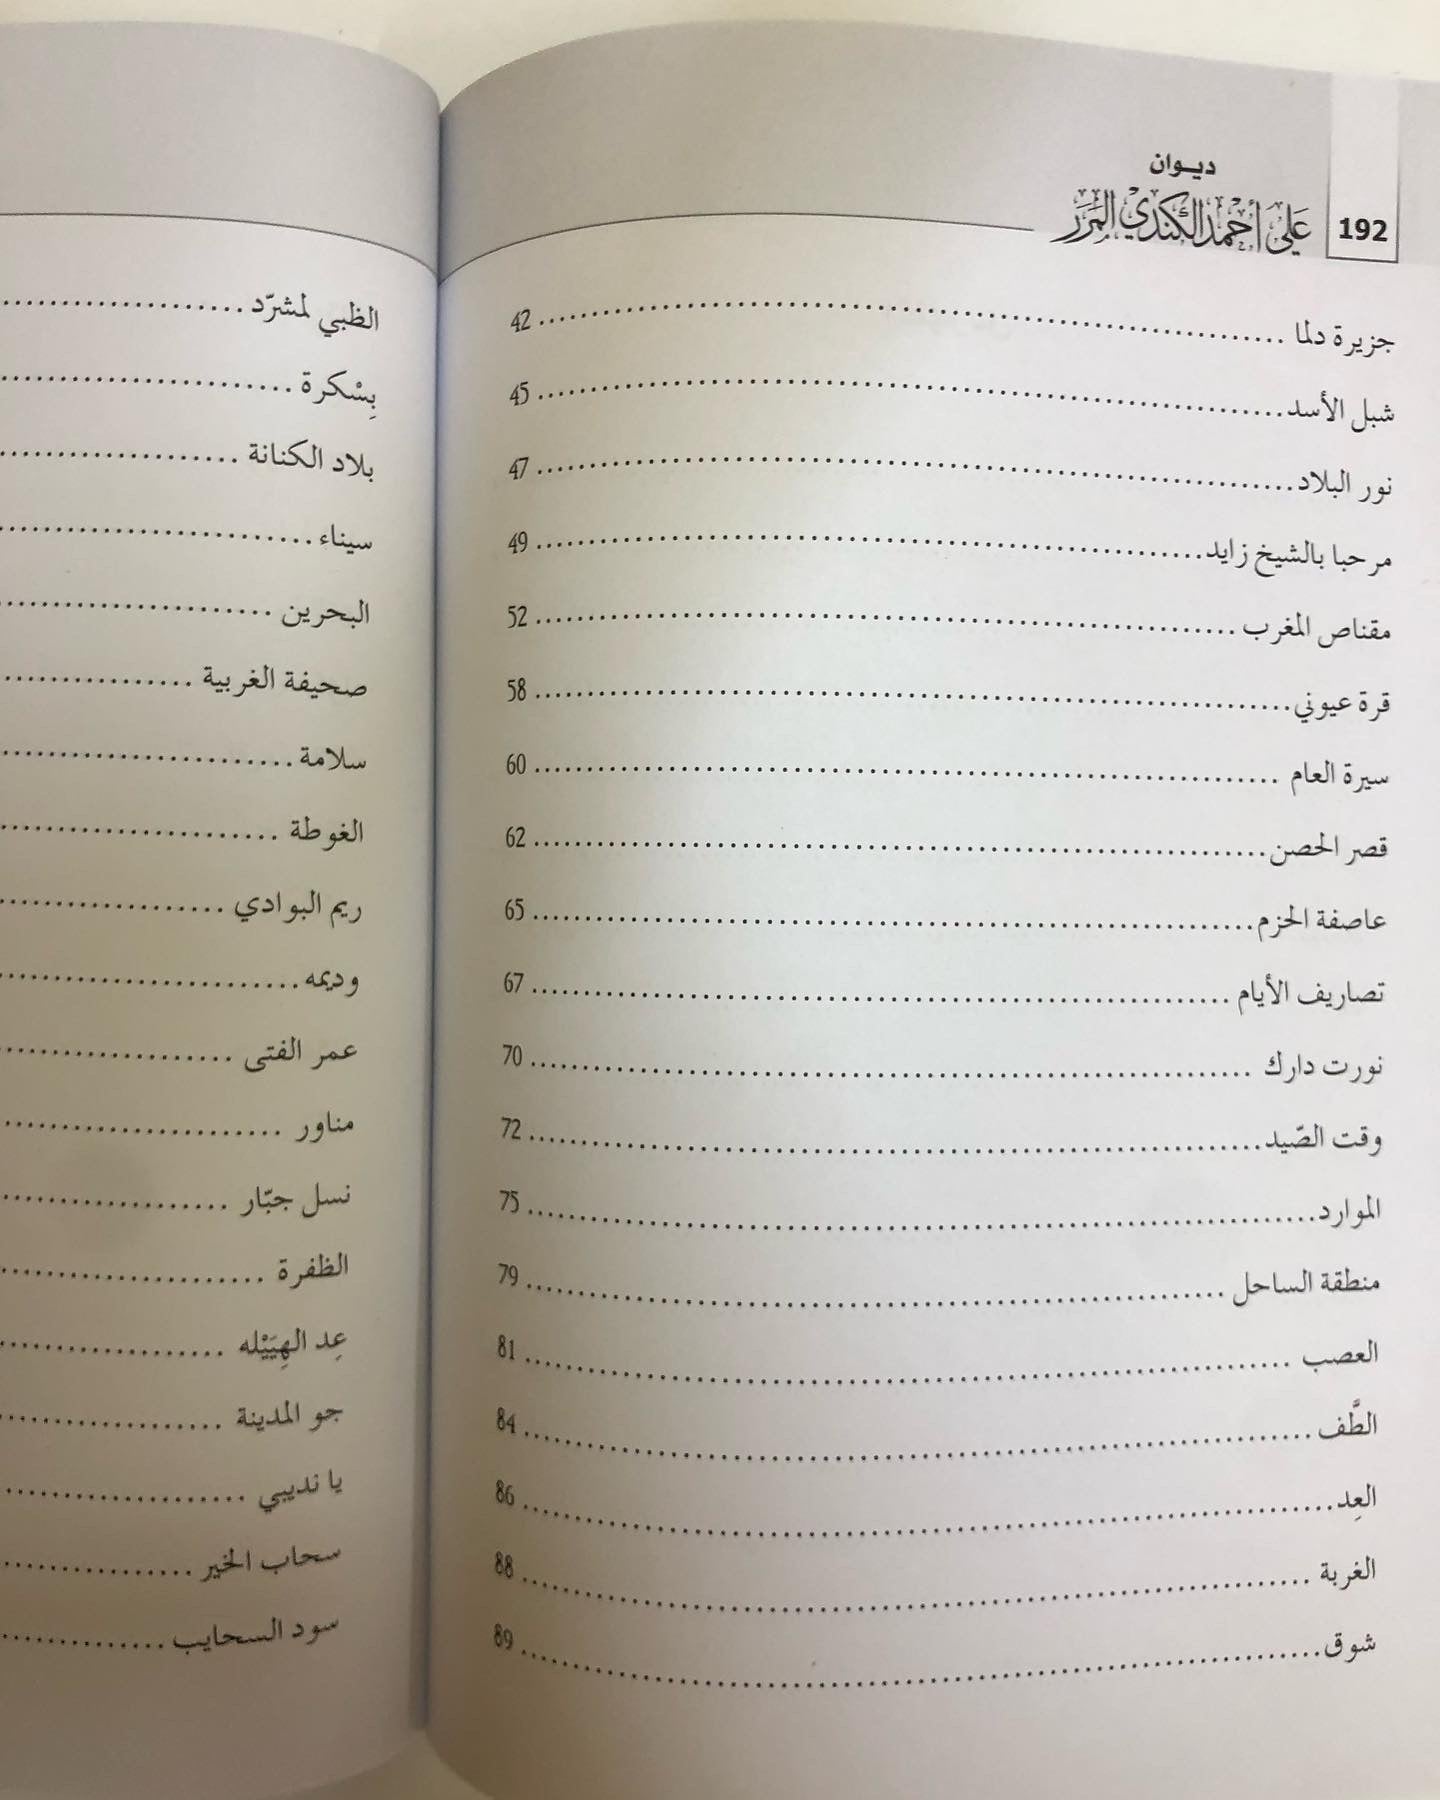 192
ديوان
علي أحمد الكندي المرر
جزيرة دلما ........ 42
شبل الأسد ........ 45
نور البلاد ........ 47
مرحبا بالشيخ زايد ........ 49
مقناص المغرب ........ 52
قرة عيوني ........ 58
سيرة العام ........ 60
قصر الحصن ........ 62
عاصفة الحزم ........ 65
تصاريف الأيام ........ 67
نورت دارك ........ 70
وقت الصّيد ........ 72
الموارد ........ 75
منطقة الساحل ........ 79
العصب ........ 81
الطَّف ........ 84
العِد ........ 86
الغربة ........ 88
شوق ........ 89
الظبي لمشرّد ........
بِسْكرة ........
بلاد الكنانة ........
سيناء ........
البحرين ........
صحيفة الغربية ........
سلامة ........
الغوطة ........
ريم البوادي ........
وديمه ........
عمر الفتى ........
مناور ........
نسل جبّار ........
الظفرة ........
عِد الهِيَيْله ........
جو المدينة ........
يا نديبي ........
سحاب الخير ........
سود السحايب ........